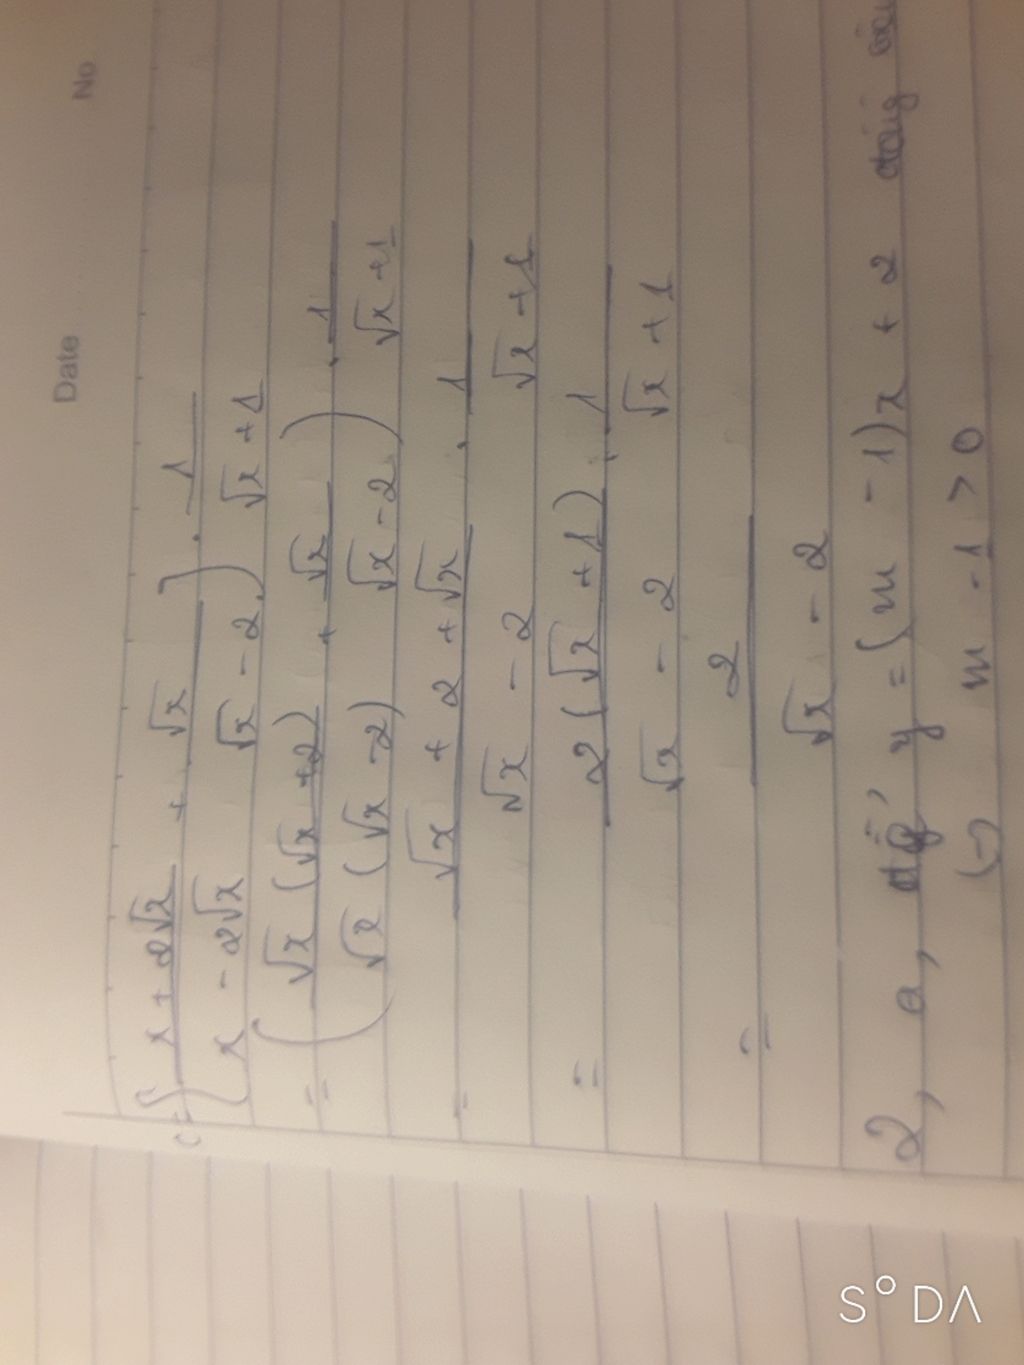 Date No
C = ( x + 2√x / x - 2√x + √x / √x - 2 ) . 1 / √x + 1
= ( √x (√x + 2) / √x (√x - 2) + √x / √x - 2 ) . 1 / √x + 1
= √x + 2 + √x / √x - 2 . 1 / √x + 1
= 2 (√x + 1) / √x - 2 . 1 / √x + 1
= 2 / √x - 2
2, a, y = (m - 1)x + 2 đồng
m - 1 > 0
S°DA